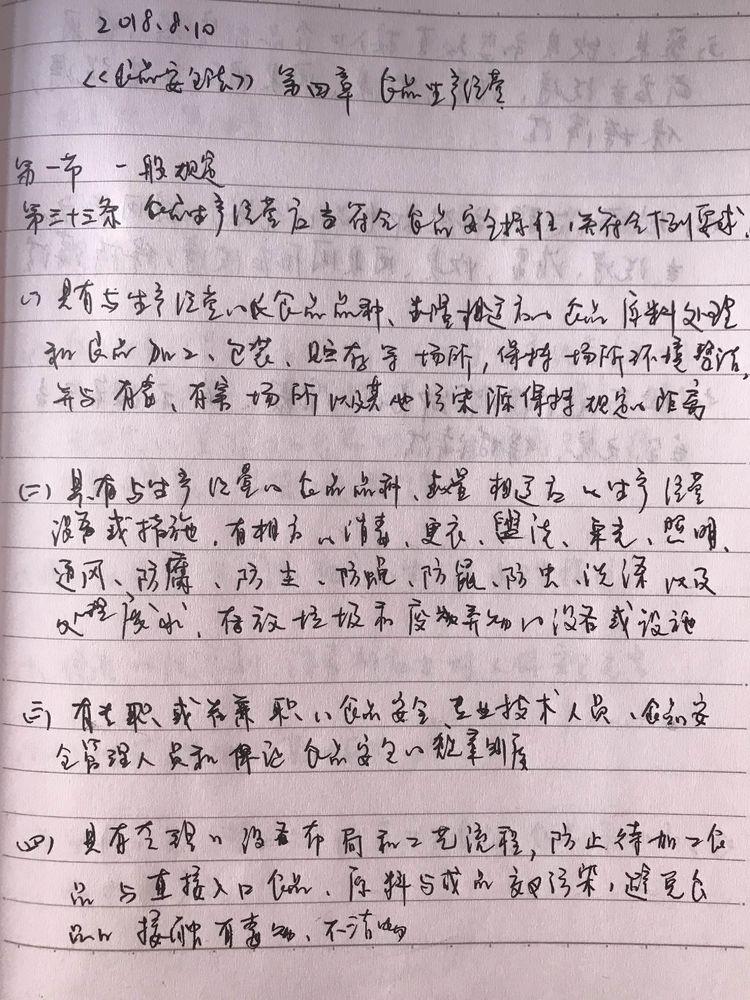 2018.8.10
《食品安全法》 第四章 食品生产经营
第一节 一般规定
第三十三条 食品生产经营应当符合食品安全标准,并符合下列要求.
(一) 具有与生产经营的食品品种、数量相适应的食品原料处理
和食品加工、包装、贮存等场所,保持场所环境整洁,
并与有毒、有害场所以及其他污染源保持规定的距离
(二) 具有与生产经营的食品品种、数量相适应的生产经营
设备或措施,有相应的消毒、更衣、盥洗、采光、照明、
通风、防腐、防尘、防蝇、防鼠、防虫、洗涤以及
处理废水、存放垃圾和废弃物的设备或设施
(三) 有专职或兼职的食品安全专业技术人员、食品安
全管理人员和保证食品安全的规章制度
(四) 具有合理的设备布局和工艺流程,防止待加工食
品与直接入口食品、原料与成品交叉污染,避免食
品的接触有毒物、不洁物